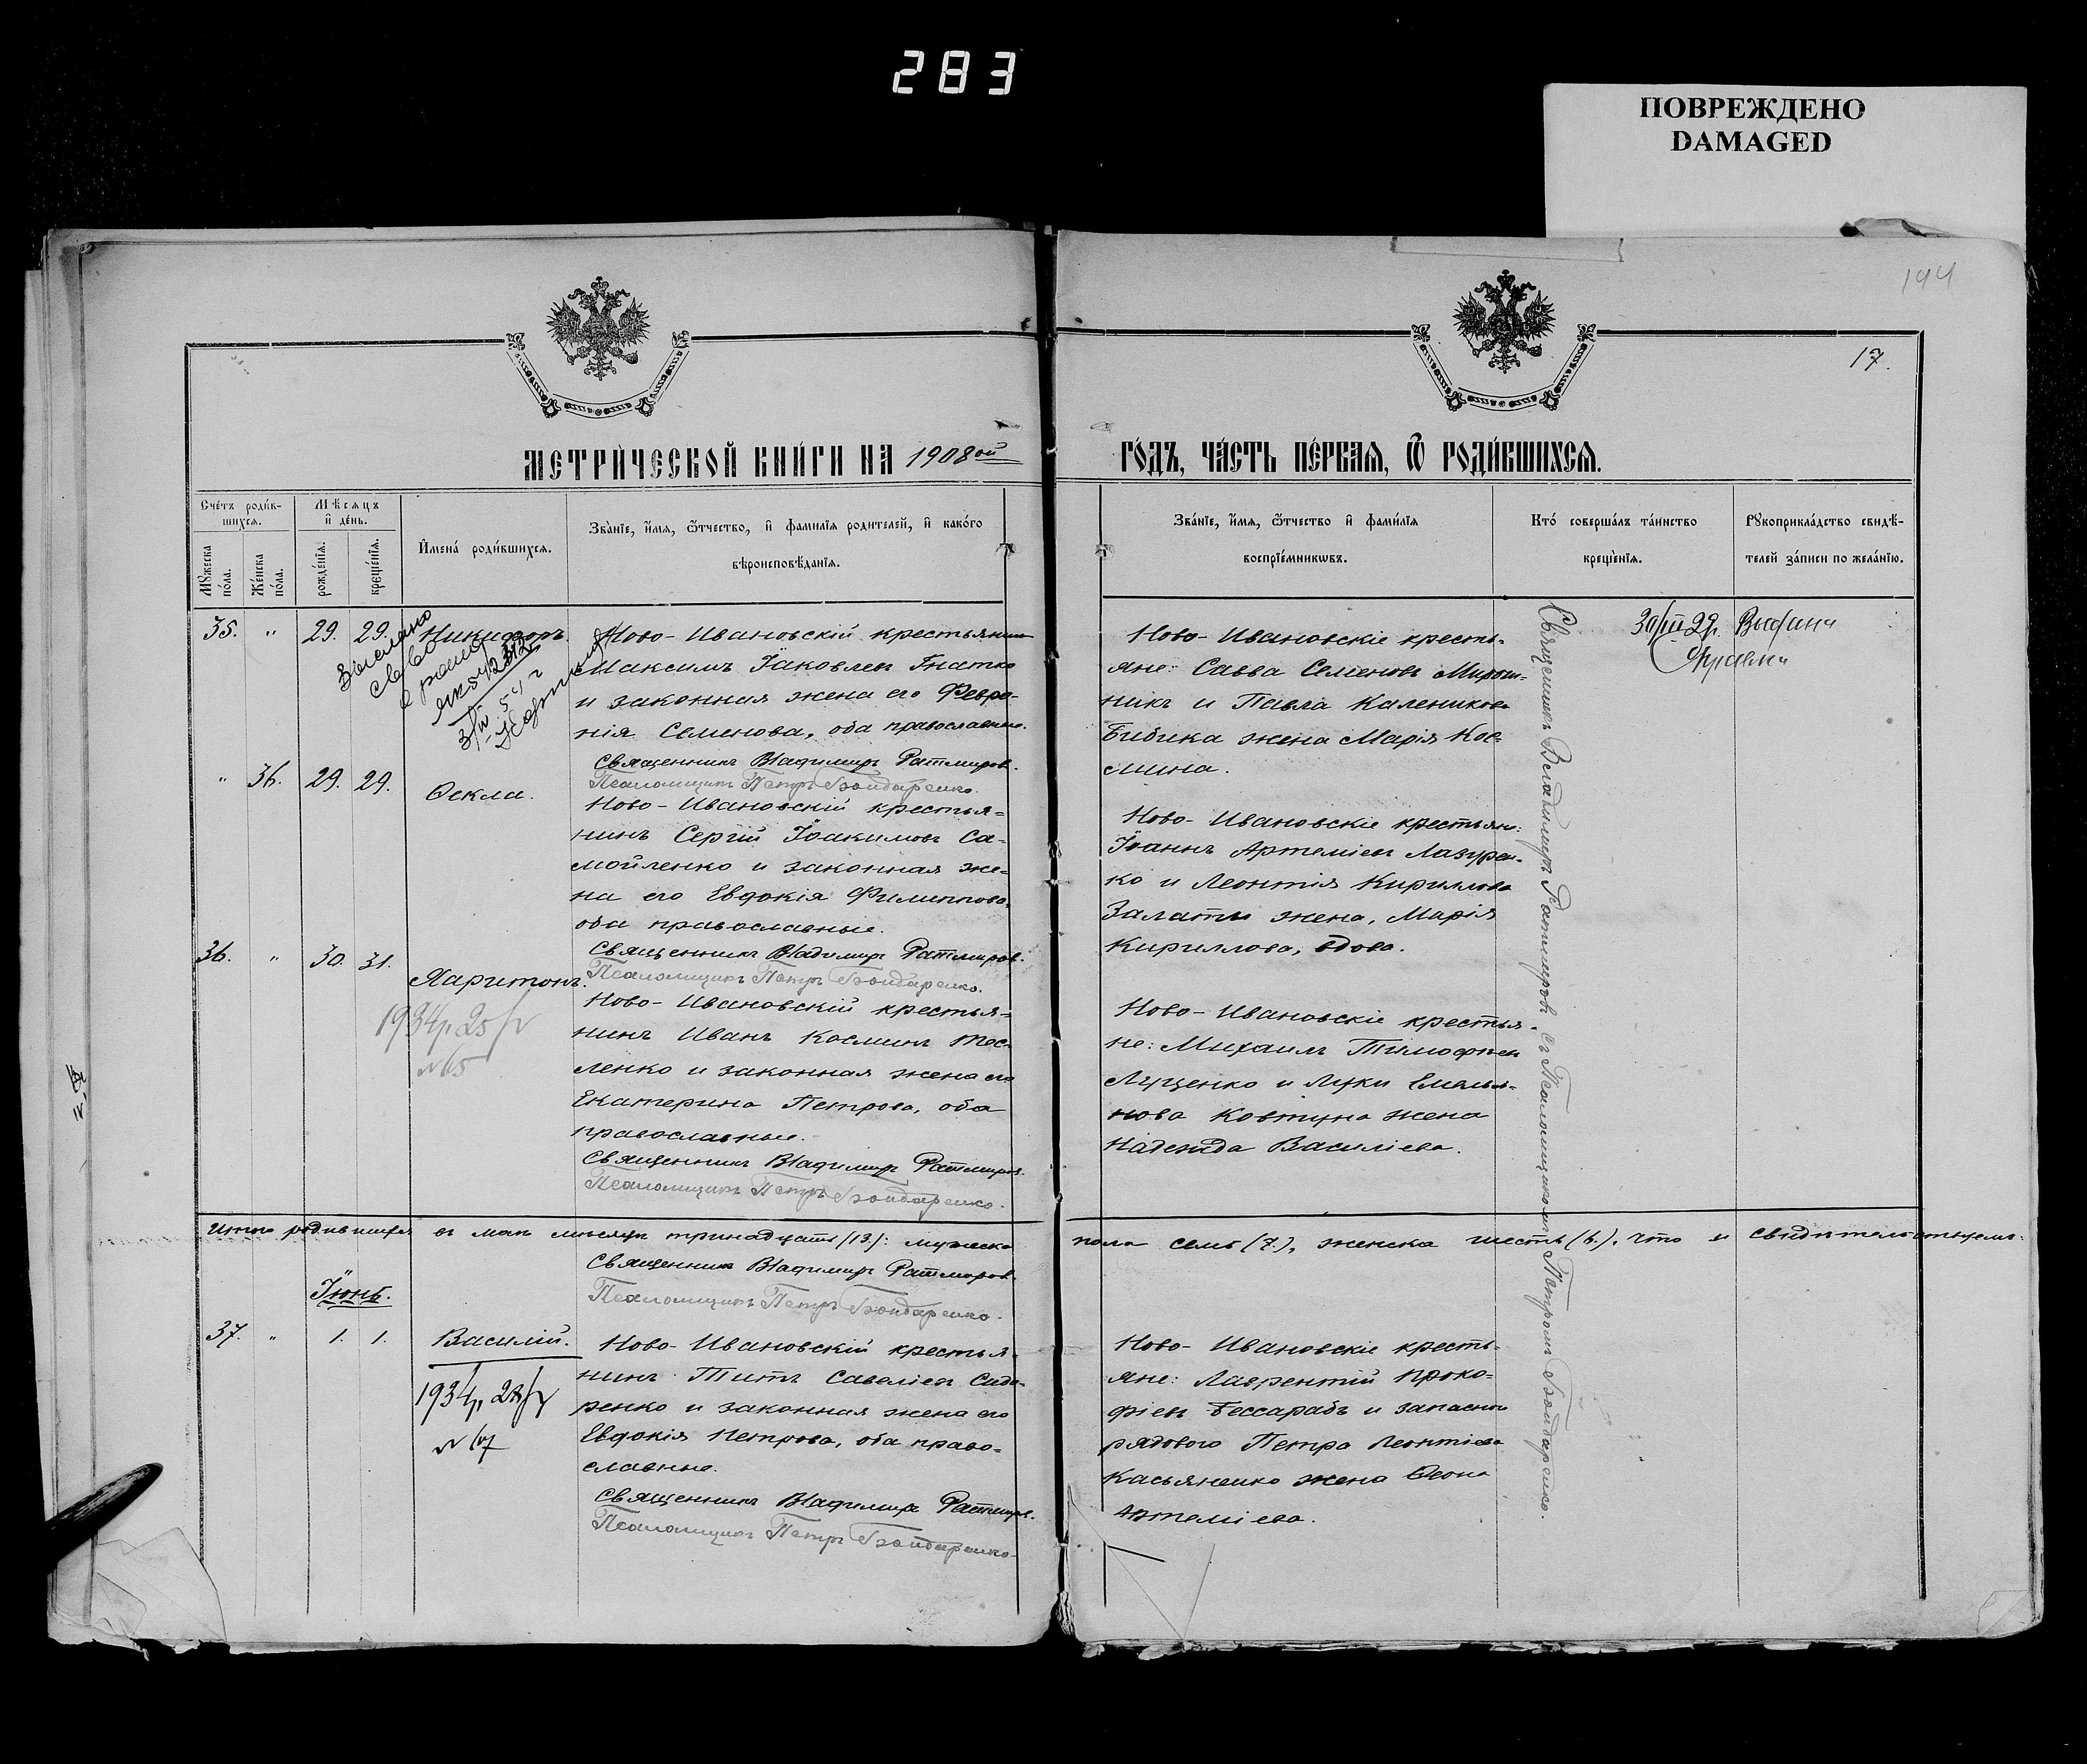 283
ПОВРЕЖДЕНО
DAMAGED
194
17.
МЕТРИ́ЧЕСКОЙ КНИ́ГИ НА 1908ой
ГО́ДЪ, ЧА́СТЬ ПЕ́РВАѦ, Ѽ РОДИ́ВШИХСѦ.
Сче́тъ роди́в-
шихсѧ.
Мѣ́сѧцъ
и҆ де́нь.
Мꙋ́жеска
по́ла.
Же́нска
по́ла.
рожде́нїѧ.
креще́нїѧ.
И҆мена̀ роди́вшихсѧ.
Зва́нїе, и҆́мѧ, ѻ҆́тчество, и҆ фами́лїѧ роди́телей, и҆ како́гѡ
вѣроисповѣ́данїѧ.
Зва́нїе, и҆́мѧ, ѻ҆́тчество и҆ фами́лїѧ
воспрїе́мникѡвъ.
Кто̀ соверша́лъ та́инство
креще́нїѧ.
Рꙋкоприкла́дство свидѣ́-
телей за́писи по жела́нїю.
35. " 29. 29. Никифоръ.
Ново-Ивановскій крестьянинъ
Максимъ Іаковлевъ Гнатко
и законная жена его Февро-
нія Семенова, оба православные.
Священникъ Владимиръ Ратмировъ.
Псаломщикъ Петръ Бондаренко.
Ново-Ивановскіе кресть-
яне: Савва Семеновъ Мирош-
никъ и Павла Каленикова
Бибика жена Марія Кос-
мина.
30/III 29р.
" 36. 29. 29. Ѳекла.
Ново-Ивановскій крестья-
нинъ Сергій Іоакимовъ Са-
мойленко и законная же-
на его Евдокія Филиппова,
оба православные.
Священникъ Владимиръ Ратмировъ.
Псаломщикъ Петръ Бондаренко.
Ново-Ивановскіе крестьяне:
Іоаннъ Артеміевъ Лазурен-
ко и Леонтія Кириллова
Залаты жена, Марія
Кириллова, вдова.
36. " 30. 31. Харитонъ.
1934р. 25/V
№65
Ново-Ивановскій крестья-
нинъ Иванъ Косминъ Тес-
ленко и законная жена его
Екатерина Петрова, оба
православные.
Священникъ Владимиръ Ратмировъ.
Псаломщикъ Петръ Бондаренко.
Ново-Ивановскіе крестья-
не: Михаилъ Тимофѣевъ
Луценко и Луки Емелья-
нова Ковтуна жена
Надежда Василіева.
Итого родившихся въ маѣ мѣсяцѣ тринадцать (13): мужеска
пола семь (7), женска шесть (6), что и свидѣтельствуемъ:
Священникъ Владимиръ Ратмировъ.
Псаломщикъ Петръ Бондаренко.
Іюнь.
37. " 1. 1. Василій.
1934р. 28/V
Ново-Ивановскій крестья-
нинъ Титъ Савеліевъ Сидо-
ренко и законная жена его
Евдокія Петрова, оба право-
славные.
Священникъ Владимиръ Ратмировъ.
Псаломщикъ Петръ Бондаренко.
Ново-Ивановскіе кресть-
яне: Лаврентій Проко-
фіевъ Бессарабъ и запаснаго
рядового Петра Леонтіева
Касьяненко жена
Артеміева.
Священникъ Владимиръ Ратмировъ съ Псаломщикомъ Петромъ Бондаренко.